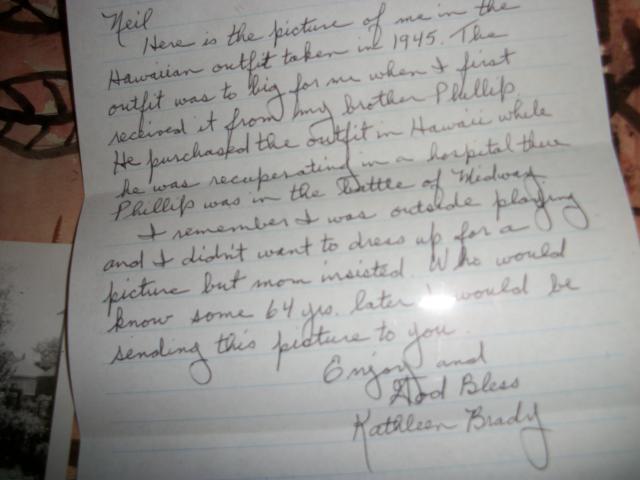 Neil
Here is the picture of me in the
Hawaiian outfit taken in 1945. The
outfit was to big for me when I first
received it from my brother Phillip.
He purchased the outfit in Hawaii while
he was recuperating in a hospital there
Phillip was in the Battle of Midway
I remember I was outside playing
and I didn't want to dress up for a
picture but mom insisted. Who would
know some 64 yrs. later I would be
sending this picture to you.
Enjoy and
God Bless
Kathleen Brady